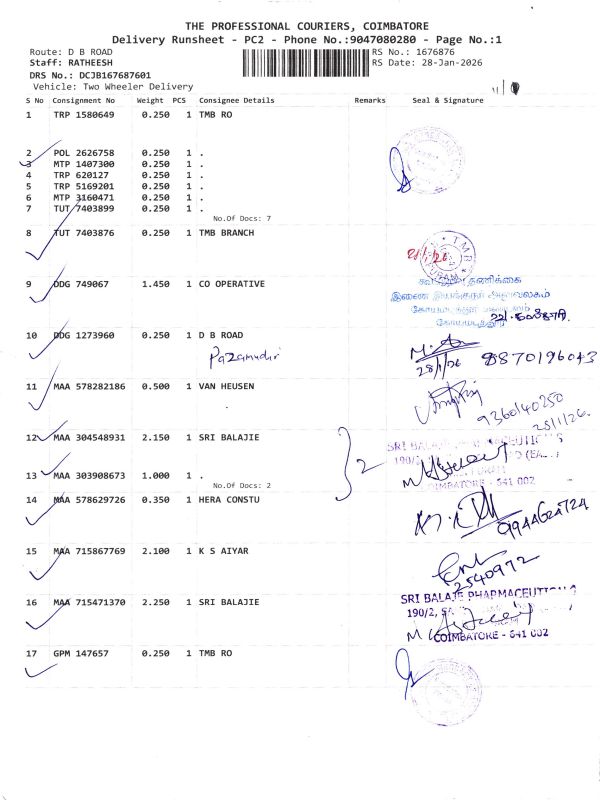 THE PROFESSIONAL COURIERS, COIMBATORE
Delivery Runsheet - PC2 - Phone No.:9047080280 - Page No.:1
Route: D B ROAD RS No.: 1676876
Staff: RATHEESH RS Date: 28-Jan-2026
DRS No.: DCJB167687601
Vehicle: Two Wheeler Delivery
S No Consignment No Weight PCS Consignee Details Remarks Seal & Signature
1 TRP 1580649 0.250 1 TMB RO
2 POL 2626758 0.250 1 .
3 MTP 1407300 0.250 1 .
4 TRP 620127 0.250 1 .
5 TRP 5169201 0.250 1 .
6 MTP 3160471 0.250 1 .
7 TUT 7403899 0.250 1 .
No.Of Docs: 7
8 TUT 7403876 0.250 1 TMB BRANCH
28/1/26
9 DDG 749067 1.450 1 CO OPERATIVE
தணிக்கை
10 DDG 1273960 0.250 1 D B ROAD
Pazamudir
28/1/26 8870196043
11 MAA 578282186 0.500 1 VAN HEUSEN
9360140250
12 MAA 304548931 2.150 1 SRI BALAJIE
2
SRI BALAJE PHARMACEUTICALS
13 MAA 303908673 1.000 1 .
No.Of Docs: 2
COIMBATORE - 641 002
14 MAA 578629726 0.350 1 HERA CONSTU
9944624724
15 MAA 715867769 2.100 1 K S AIYAR
2540972
16 MAA 715471370 2.250 1 SRI BALAJIE
SRI BALAJE PHARMACEUTICALS
190/2,
COIMBATORE - 641 002
17 GPM 147657 0.250 1 TMB RO